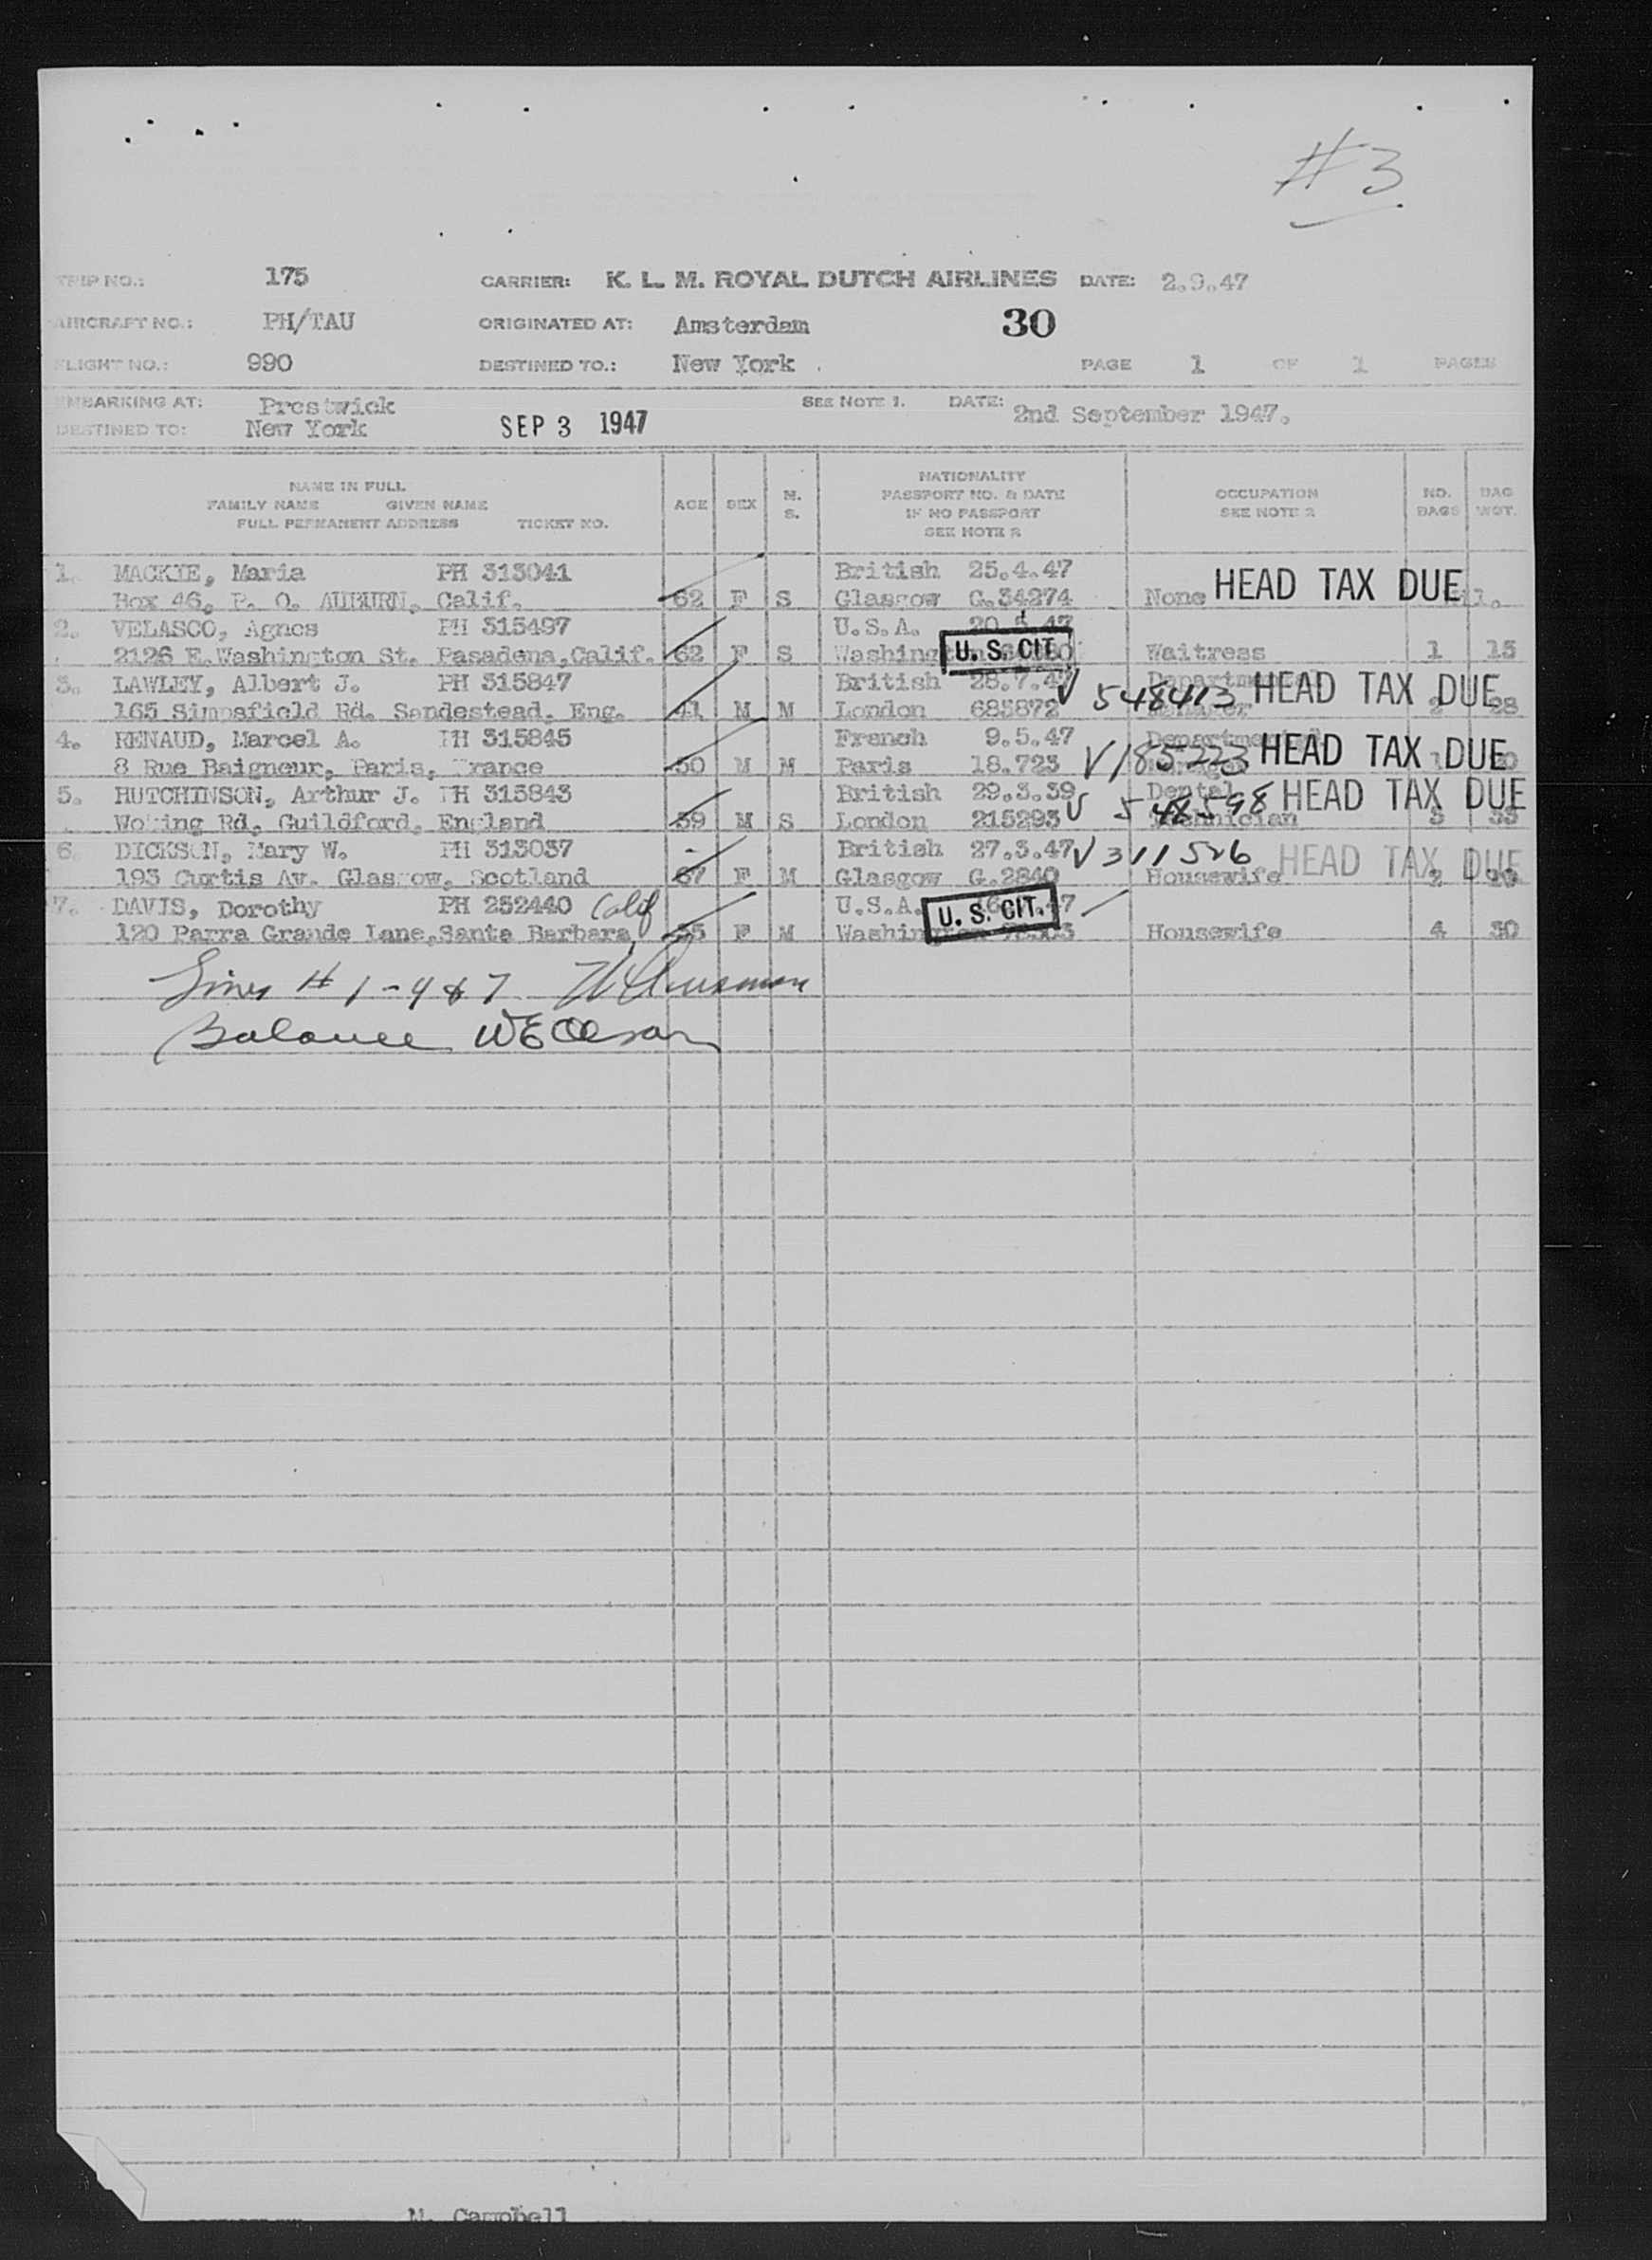 #3
TRIP NO.: 175 CARRIER: K. L. M. ROYAL DUTCH AIRLINES DATE: 2.9.47
AIRCRAFT NO.: PH/TAU ORIGINATED AT: Amsterdam 30
FLIGHT NO.: 990 DESTINED TO.: New York . PAGE 1 OF 1 PAGES
EMBARKING AT: Prestwick SEE NOTE 1. DATE: 2nd September 1947.
DESTINED TO: New York SEP 3 1947
NAME IN FULL
FAMILY NAME GIVEN NAME
FULL PERMANENT ADDRESS TICKET NO.
AGE SEX M. S.
NATIONALITY
PASSPORT NO. & DATE
IF NO PASSPORT
SEE NOTE 2
OCCUPATION
SEE NOTE 2
NO. BAGS
BAG WGT.
1. MACKIE, Maria PH 313041 British 25.4.47
Box 46, P. O. AUBURN, Calif. 62 F S Glasgow G.34274 None HEAD TAX DUE
2. VELASCO, Agnes PH 315497 U.S.A.
2126 E.Washington St. Pasadena,Calif. 62 F S U. S. CIT. Waitress 1 15
3. LAWLEY, Albert J. PH 315847 British 28.7.47 V 548413 HEAD TAX DUE
165 Simpsfield Rd. Sandestead, Eng. 41 M M London 685872 2 28
4. RENAUD, Marcel A. PH 315845 French 9.5.47
8 Rue Baigneur, Paris, France 50 M M Paris 18.723 V 185223 HEAD TAX DUE
5. HUTCHINSON, Arthur J. PH 315843 British 29.3.39 Dental
Woking Rd, Guildford, England 39 M S London 215293 V 548598 Technician HEAD TAX DUE
6. DICKSON, Mary W. PH 313037 British 27.3.47 V 311526
193 Curtis Av. Glasgow, Scotland 67 F M Glasgow G.2840 Housewife HEAD TAX DUE
7. DAVIS, Dorothy PH 252440 Calif U.S.A. U. S. CIT.
120 Parra Grande Lane,Santa Barbara 55 F M Housewife 4 30
Lines # 1-4 & 7
Balance
M. Campbell